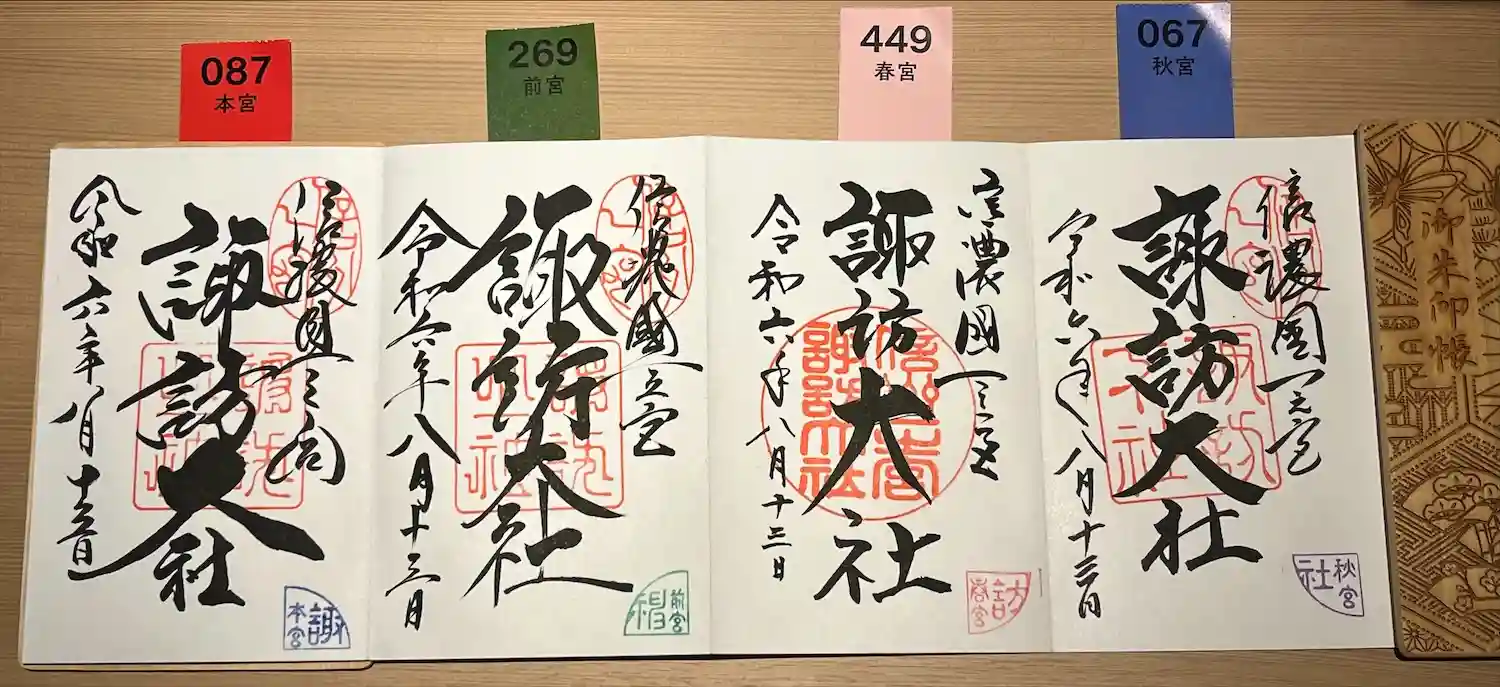 087
本宮
269
前宮
449
春宮
067
秋宮
信濃國一之宮
諏訪大社
令和六年八月十三日
諏訪大社
諏
本宮
信濃國一之宮
諏訪大社
令和六年八月十三日
諏訪大社
前宮
信濃國一之宮
諏訪大社
令和六年八月十三日
訪
春宮
信濃國一之宮
諏訪大社
令和六年八月十三日
諏訪大社
秋宮
社
御朱印帳